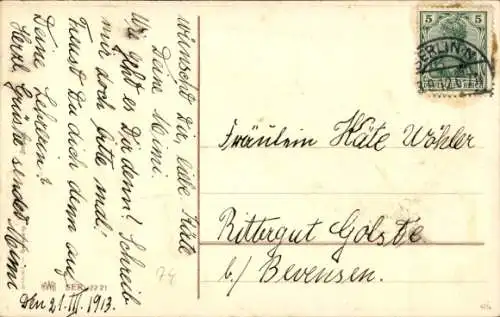 wünscht Dir, liebe Käte
Deine Mimi.
Wie geht es Dir denn? Schreib
mir doch bitte mal!
Freust Du dich denn auf
Deine Lehrerin?
Herzl. Grüße sendet Mimi
Den 21. III. 1913.
SER. 22 21
74
5 5
BERLIN
Fräulein Käte Wöhler
Rittergut Golste
b/ Bevensen.